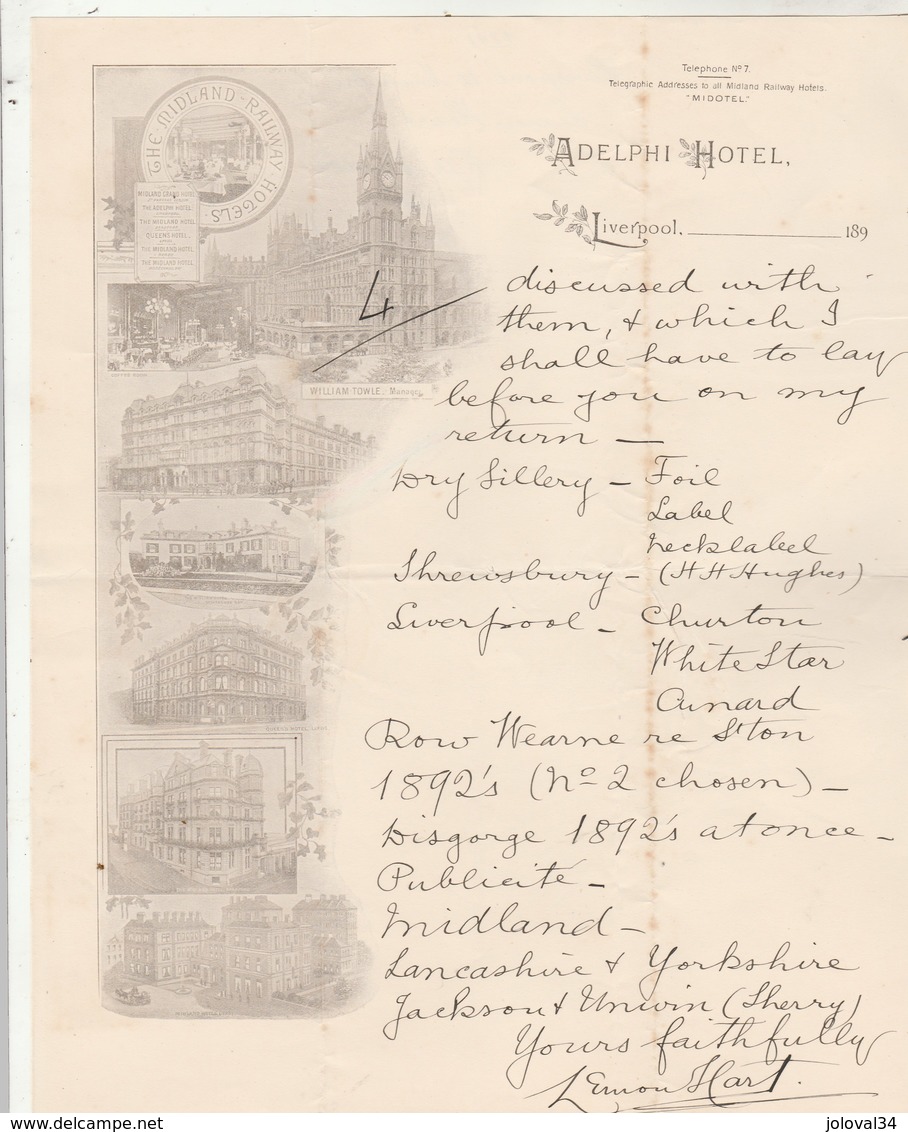 Telephone Nº 7.
Telegraphic Addresses to all Midland Railway Hotels.
"MIDOTEL."
ADELPHI HOTEL,
Liverpool, 189
THE MIDLAND RAILWAY HOTELS
MIDLAND GRAND HOTEL
THE ADELPHI HOTEL
THE MIDLAND HOTEL
QUEENS HOTEL
THE MIDLAND HOTEL
THE MIDLAND HOTEL
COFFEE ROOM
WILLIAM TOWLE, Manager
QUEENS HOTEL, LEEDS
4
discussed with
them, & which I
shall have to lay
before you on my
return —
Dry Sillery — Foil
Label
necklabel
Shrewsbury — (H H Hughes)
Liverpool — Churton
White Star
Cunard
Row Wearne re S'ton
1892's (Nº 2 chosen) —
Disgorge 1892's at once —
Publicité —
Midland —
Lancashire & Yorkshire
Jackson & Unwin (Sherry)
Yours faithfully
Lemon Hart.
delcampe.net
joloval34